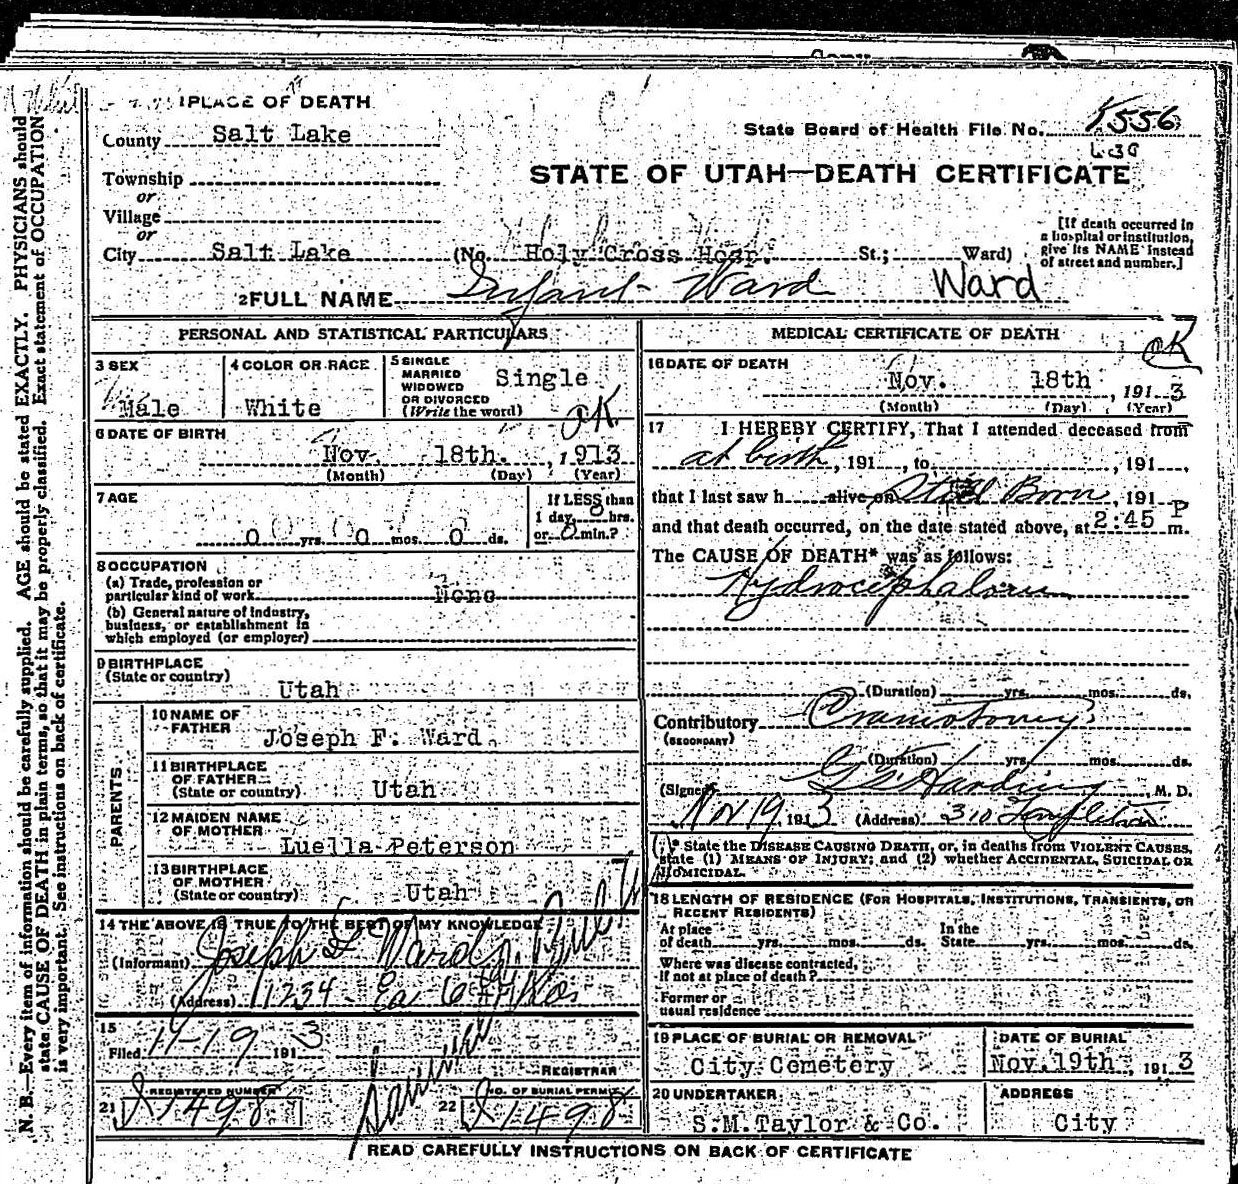 1 PLACE OF DEATH
County Salt Lake
State Board of Health File No. 556
Township
or
Village
or
City Salt Lake (No. Holy Cross Hosp. St.; Ward)
STATE OF UTAH—DEATH CERTIFICATE
[If death occurred in
a hospital or institution,
give its NAME instead
of street and number.]
2 FULL NAME Infant Ward Ward
PERSONAL AND STATISTICAL PARTICULARS
3 SEX
Male
4 COLOR OR RACE
White
5 SINGLE
MARRIED
WIDOWED
OR DIVORCED
(Write the word)
Single
OK
6 DATE OF BIRTH
Nov. 18th. , 1913
(Month) (Day) (Year)
7 AGE
0 yrs. 0 mos. 0 ds.
If LESS than
1 day, 0 hrs.
or 0 min.?
8 OCCUPATION
(a) Trade, profession or
particular kind of work None
(b) General nature of industry,
business, or establishment in
which employed (or employer)
9 BIRTHPLACE
(State or country)
Utah
PARENTS
10 NAME OF
FATHER
Joseph F. Ward
11 BIRTHPLACE
OF FATHER
(State or country) Utah
12 MAIDEN NAME
OF MOTHER
Luella Peterson
13 BIRTHPLACE
OF MOTHER
(State or country) Utah
14 THE ABOVE IS TRUE TO THE BEST OF MY KNOWLEDGE
(Informant) Joseph F Ward
(Address) 1234
15
Filed 11-19 1913
REGISTRAR
REGISTERED NUMBER
21 1498
NO. OF BURIAL PERMIT
22 1498
MEDICAL CERTIFICATE OF DEATH
OK
16 DATE OF DEATH
Nov. 18th , 1913
(Month) (Day) (Year)
17 I HEREBY CERTIFY, That I attended deceased from
at birth , 191 , to , 191 ,
that I last saw h alive on Still Born , 191
and that death occurred, on the date stated above, at 2:45 P m.
The CAUSE OF DEATH* was as follows:
Hydrocephalous
(Duration) yrs. mos. ds.
Contributory Craniotomy
(SECONDARY)
(Duration) yrs. mos. ds.
(Signed) Harding, M. D.
Nov 19 1913 (Address) 310 Templeton
* State the DISEASE CAUSING DEATH, or, in deaths from VIOLENT CAUSES,
state (1) MEANS OF INJURY; and (2) whether ACCIDENTAL, SUICIDAL OR
HOMICIDAL.
18 LENGTH OF RESIDENCE (FOR HOSPITALS, INSTITUTIONS, TRANSIENTS, OR
RECENT RESIDENTS)
At place
of death yrs. mos. ds.
In the
State yrs. mos. ds.
Where was disease contracted,
if not at place of death?
Former or
usual residence
19 PLACE OF BURIAL OR REMOVAL
City Cemetery
DATE OF BURIAL
Nov. 19th, 1913
20 UNDERTAKER
S.M.Taylor & Co.
ADDRESS
City
READ CAREFULLY INSTRUCTIONS ON BACK OF CERTIFICATE
N. B.—Every item of information should be carefully supplied. AGE should be stated EXACTLY. PHYSICIANS should
state CAUSE OF DEATH in plain terms, so that it may be properly classified. Exact statement of OCCUPATION
is very important. See instructions on back of certificate.